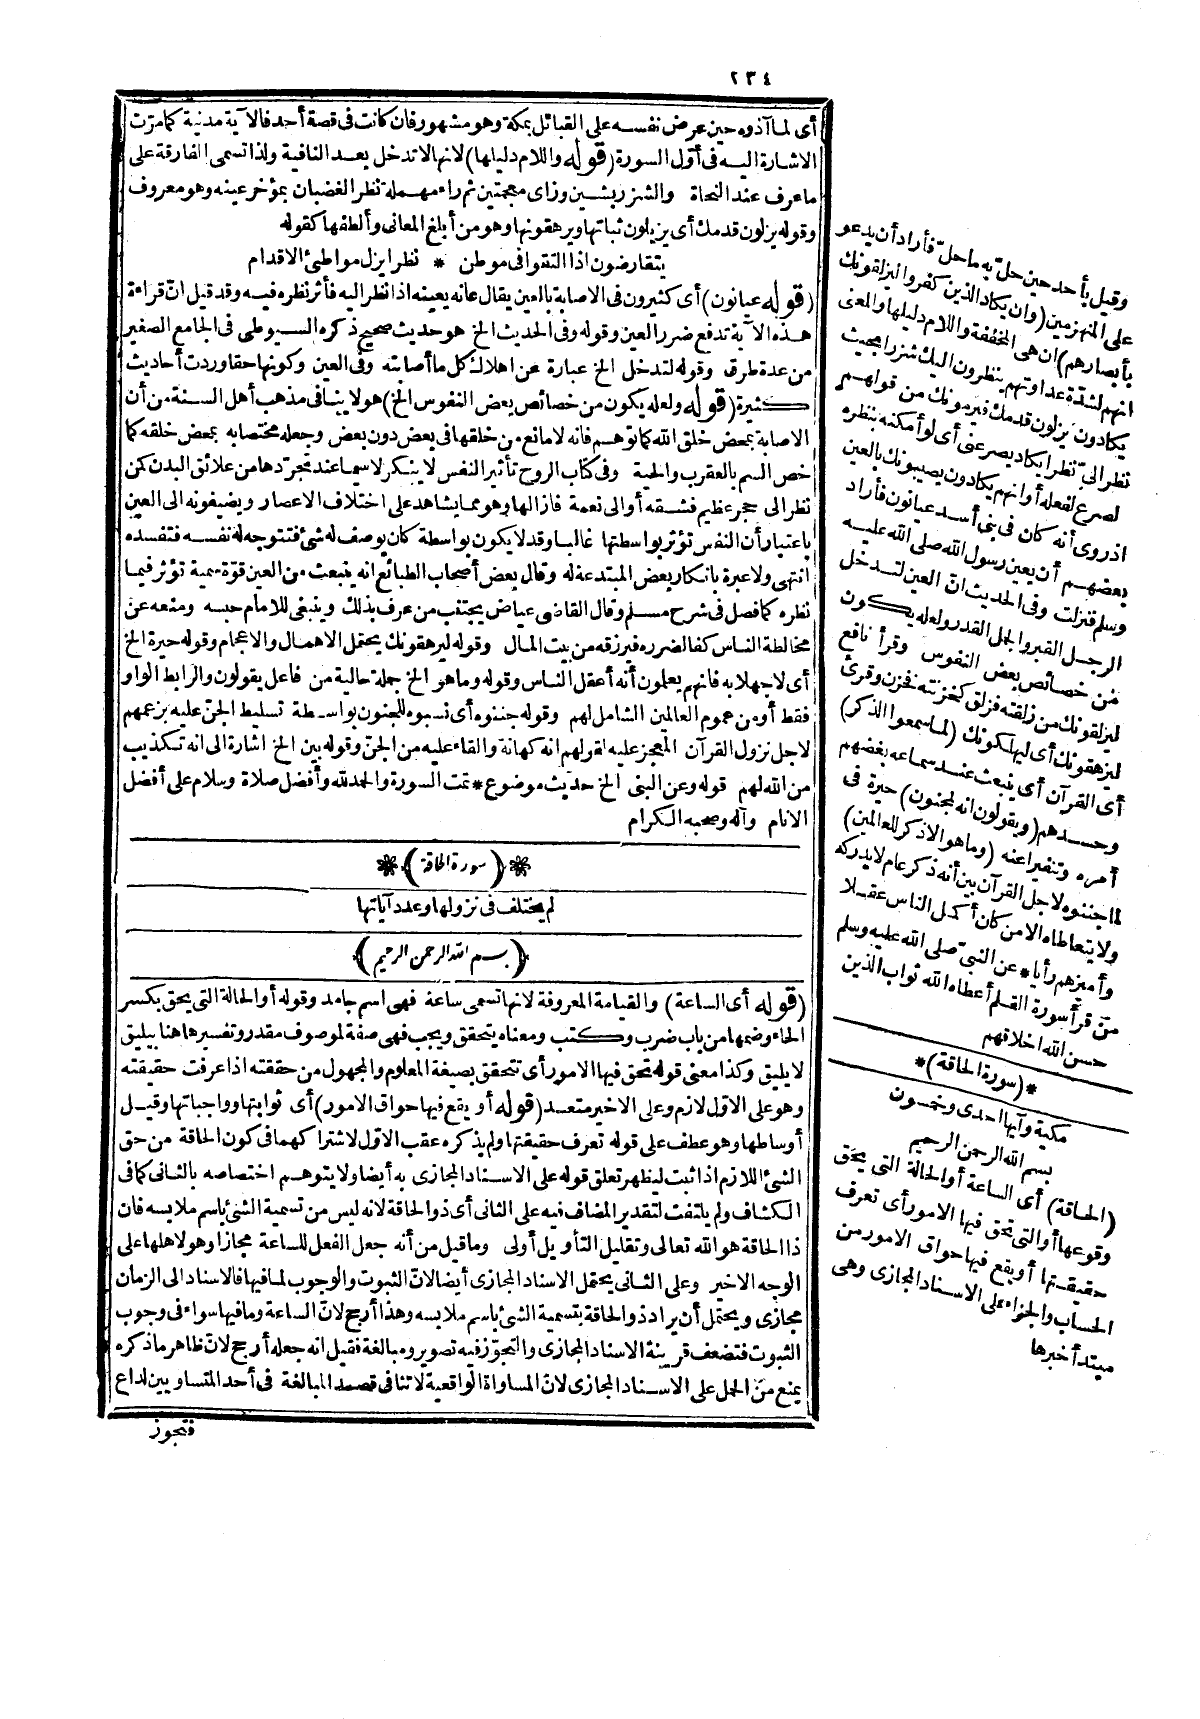 ٢٣٤
أى لما آذوه حين عرض نفسه على القبائل بمكة وهو مشهور فان كانت فى قصة أحد فالآية مدنية كما مرّت
الاشارة اليه فى أوّل السورة (قوله واللام دليلها) لانها لا تدخل بعد النافية ولذا تسمى الفارقة على
ما عرف عند النحاة والشزر بشين وزاى معجمتين ثم راء مهملة نظر الغضبان بمؤخر عينه وهو معروف
وقوله يزلون قدمك أى يزيلون ثباتها ويرهقونها وهو من أبلغ المعانى وألطفها كقوله
يتقارضون اذا التقوا فى موطن * نظرا يزل مواطئ الاقدام
(قوله عيانون) أى كثيرون فى الاصابة بالعين يقال عانه يعينه اذا نظر اليه فأثر نظره فيه وقد قيل انّ قراءة
هذه الآية تدفع ضرر العين وقوله وفى الحديث الخ هو حديث صحيح ذكره السيوطى فى الجامع الصغير
من عدة طرق وقوله لتدخل الخ عبارة عن اهلاك كل ما أصابته وفى العين وكونها حقا وردت أحاديث
كثيرة (قوله ولعله يكون من خصائص بعض النفوس الخ) هو لا ينافى مذهب أهل السنة من أن
الاصابة بمحض خلق الله كما توهم فانه لا مانع من خلقها فى بعض دون بعض وجعله مختصا به بعض خلقه كما
أخص السم بالعقرب والحية وفى كتاب الروح تأثير النفس لا ينكر لا سيما عند تجرّدها من علائق البدن كمن
نظر الى حجر عظيم فشقه أو الى نعمة فازالها وهو مما يشاهد على اختلاف الاعصار ويضيفونه الى العين
باعتبار أن النفس تؤثر بواسطتها غالبا وقد لا يكون بواسطة كان يوصف له شئ فتتوجه له نفسه فتفسده
انتهى ولا عبرة بانكار بعض المبتدعة له وقال بعض أصحاب الطبائع انه ينبعث من العين قوّة سمية تؤثر فيما
نظره كما فصل فى شرح مسلم وقال القاضى عياض يجتنب من عرف بذلك وينبغى للامام حبسه ومنعه عن
مخالطة الناس كفا لضرره فيرزقه من بيت المال وقوله ليرهقونك يحتمل الاهمال والاعجام وقوله حيرة الخ
أى لا جهلا به فانهم يعلمون أنه أعقل الناس وقوله وما هو الخ جملة حالية من فاعل يقولون والرابط الواو
فقط أو من عموم العالمين الشامل لهم وقوله جننوه أى نسبوه للجنون بواسطة تسليط الجن عليه بزعمهم
لاجل نزول القرآن المعجز عليه لقولهم انه كهانة والقاء عليه من الجنّ وقوله بين الخ اشارة الى انه تكذيب
من الله لهم قوله وعن النبى الخ حديث موضوع * تمت السورة والحمد لله وأفضل صلاة وسلام على أفضل
الانام وآله وصحبه الكرام
(سورة الحاقة)
لم يختلف فى نزولها وعدد آياتها
(بسم الله الرحمن الرحيم)
(قوله أى الساعة) والقيامة المعروفة لانها تسمى ساعة فهى اسم جامد وقوله أو الحالة التى يحق بكسر
الحاء وضمها من باب ضرب وكتب ومعناه يتحقق ويجب فهى صفة لموصوف مقدر وتفسيرها هنا بيليق
لا يليق وكذا معنى قوله تحق فيها الامور أى تتحقق بصيغة المعلوم والمجهول من حققته اذا عرفت حقيقته
وهو على الاوّل لازم وعلى الاخير متعد (قوله أو يقع فيها حواق الامور) أى ثوابتها وواجباتها وقيل
أوساطها وهو عطف على قوله تعرف حقيقتها ولم يذكره عقب الاول لاشتراكهما فى كون الحاقة من حق
الشئ اللازم اذا ثبت ليظهر تعلق قوله على الاسناد المجازى به أيضا ولا يتوهم اختصاصه بالثانى كما فى
الكشاف ولم يلتفت لتقدير المضاف فيه على الثانى أى ذو الحاقة لانه ليس من تسمية الشئ باسم ملابسه فان
ذا الحاقة هو الله تعالى وتقليل التأويل أولى وما قيل من أنه جعل الفعل للساعة مجازا وهو لاهلها على
الوجه الاخير وعلى الثانى يحتمل الاسناد المجازى أيضا لانّ الثبوت والوجوب لما فيها فالاسناد الى الزمان
مجازى ويحتمل أن يراد ذو الحاقة بتسمية الشئ باسم ملابسه وهذا أرجح لانّ الساعة وما فيها سواء فى وجوب
الثبوت فتضعف قرينة الاسناد المجازى والتجوّز فيه تصوير ومبالغة فقيل انه جعله أرجح لانّ ظاهر ما ذكره
يمنع من الحمل على الاسناد المجازى لانّ المساواة الواقعية لا تنافى قصد المبالغة فى أحد المتساويين لداع
فتجوز
وقيل بأحد حين حلّ به ما حلّ فأراد أن يدعو
على المنهزمين (وان يكاد الذين كفروا ليزلقونك
بأبصارهم) ان هى المخففة واللام دليلها والمعنى
انهم لشدّة عداوتهم ينظرون اليك شزرا بحيث
يكادون يزلون قدمك فيرمونك من قولهم
نظر الىّ نظرا يكاد يصرعنى أى لو أمكنه بنظره
لصرع لفعله أو انهم يكادون يصيبونك بالعين
اذ روى أنه كان فى بنى أسد عيانون فأراد
بعضهم أن يعين رسول الله صلى الله عليه
وسلم فنزلت وفى الحديث انّ العين لتدخل
الرجل القبر والجمل القدر ولعله يكون
من خصائص بعض النفوس وقرأ نافع
ليزلقونك من زلقته فزلق كحزنته فحزن وقرئ
ليزهقونك أى ليهلكونك (لما سمعوا الذكر)
أى القرآن أى ينبعث عند سماعه بغضهم
وحسدهم (ويقولون انه لمجنون) حيرة فى
أمره وتنفيرا عنه (وما هو الا ذكر للعالمين)
لما جننوه لاجل القرآن بين أنه ذكر عام لا يدركه
ولا يتعاطاه الا من كان أكمل الناس عقلا
وأميزهم رأيا * عن النبىّ صلى الله عليه وسلم
من قرأ سورة القلم أعطاه الله ثواب الذين
حسن الله اخلاقهم
*(سورة الحاقة)*
مكية وآيها احدى وخمسون
بسم الله الرحمن الرحيم
(الحاقة) أى الساعة أو الحالة التى يحق
وقوعها أو التى تحق فيها الامور أى تعرف
حقيقتها أو يقع فيها حواق الامور من
الحساب والجزاء على الاسناد المجازى وهى
مبتدأ خبرها